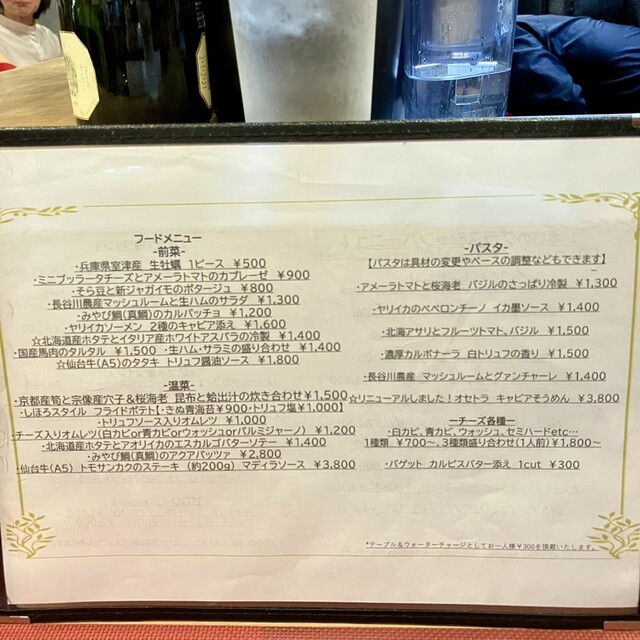 フードメニュー
-前菜-
・兵庫県室津産 生牡蠣 1ピース ¥500
・ミニブッラータチーズとアメーラトマトのカプレーゼ ¥900
・そら豆と新ジャガイモのポタージュ ¥800
・長谷川農産マッシュルームと生ハムのサラダ ¥1,300
・みやび鯛(真鯛)のカルパッチョ ¥1,200
・ヤリイカソーメン 2種のキャビア添え ¥1,600
☆北海道産ホタテとイタリア産ホワイトアスパラの冷製 ¥1,400
・国産馬肉のタルタル ¥1,500 ・生ハム・サラミの盛り合わせ ¥1,400
☆仙台牛(A5)のタタキ トリュフ醤油ソース ¥1,800
-温菜-
・京都産筍と宗像産穴子&桜海老 昆布と蛤出汁の炊き合わせ¥1,500
・しほろスタイル フライドポテト【・きぬ青海苔¥900・トリュフ塩¥1,000】
・トリュフソース入りオムレツ ¥1,000
・チーズ入りオムレツ(白カビor青カビorウォッシュorパルミジャーノ) ¥1,200
・北海道産ホタテとアオリイカのエスカルゴバターソテー ¥1,400
・みやび鯛(真鯛)のアクアパッツァ ¥2,800
・仙台牛(A5) トモサンカクのステーキ (約200g) マディラソース ¥3,800
-パスタ-
【パスタは具材の変更やベースの調整などもできます】
・アメーラトマトと桜海老 バジルのさっぱり冷製 ¥1,300
・ヤリイカのペペロンチーノ イカ墨ソース ¥1,400
・北海アサリとフルーツトマト、バジル ¥1,500
・濃厚カルボナーラ 白トリュフの香り ¥1,500
・長谷川農産 マッシュルームとグァンチャーレ ¥1,400
☆リニューアルしました！オセトラ キャビアそうめん ¥3,800
ーチーズ各種ー
・白カビ、青カビ、ウォッシュ、セミハードetc…
1種類 ¥700～、3種類盛り合わせ(1人前)¥1,800～
・バゲット カルピスバター添え 1cut ¥300
*テーブル&ウォーターチャージとしてお一人様¥300を頂戴いたします。